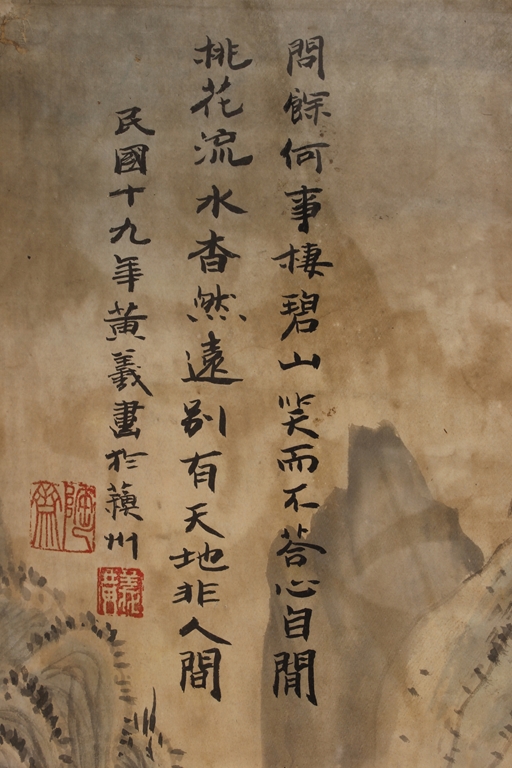 問餘何事棲碧山笑而不荅心自閒
桃花流水杳然遠別有天地非人間
民國十九年黃羲畫於蘓州